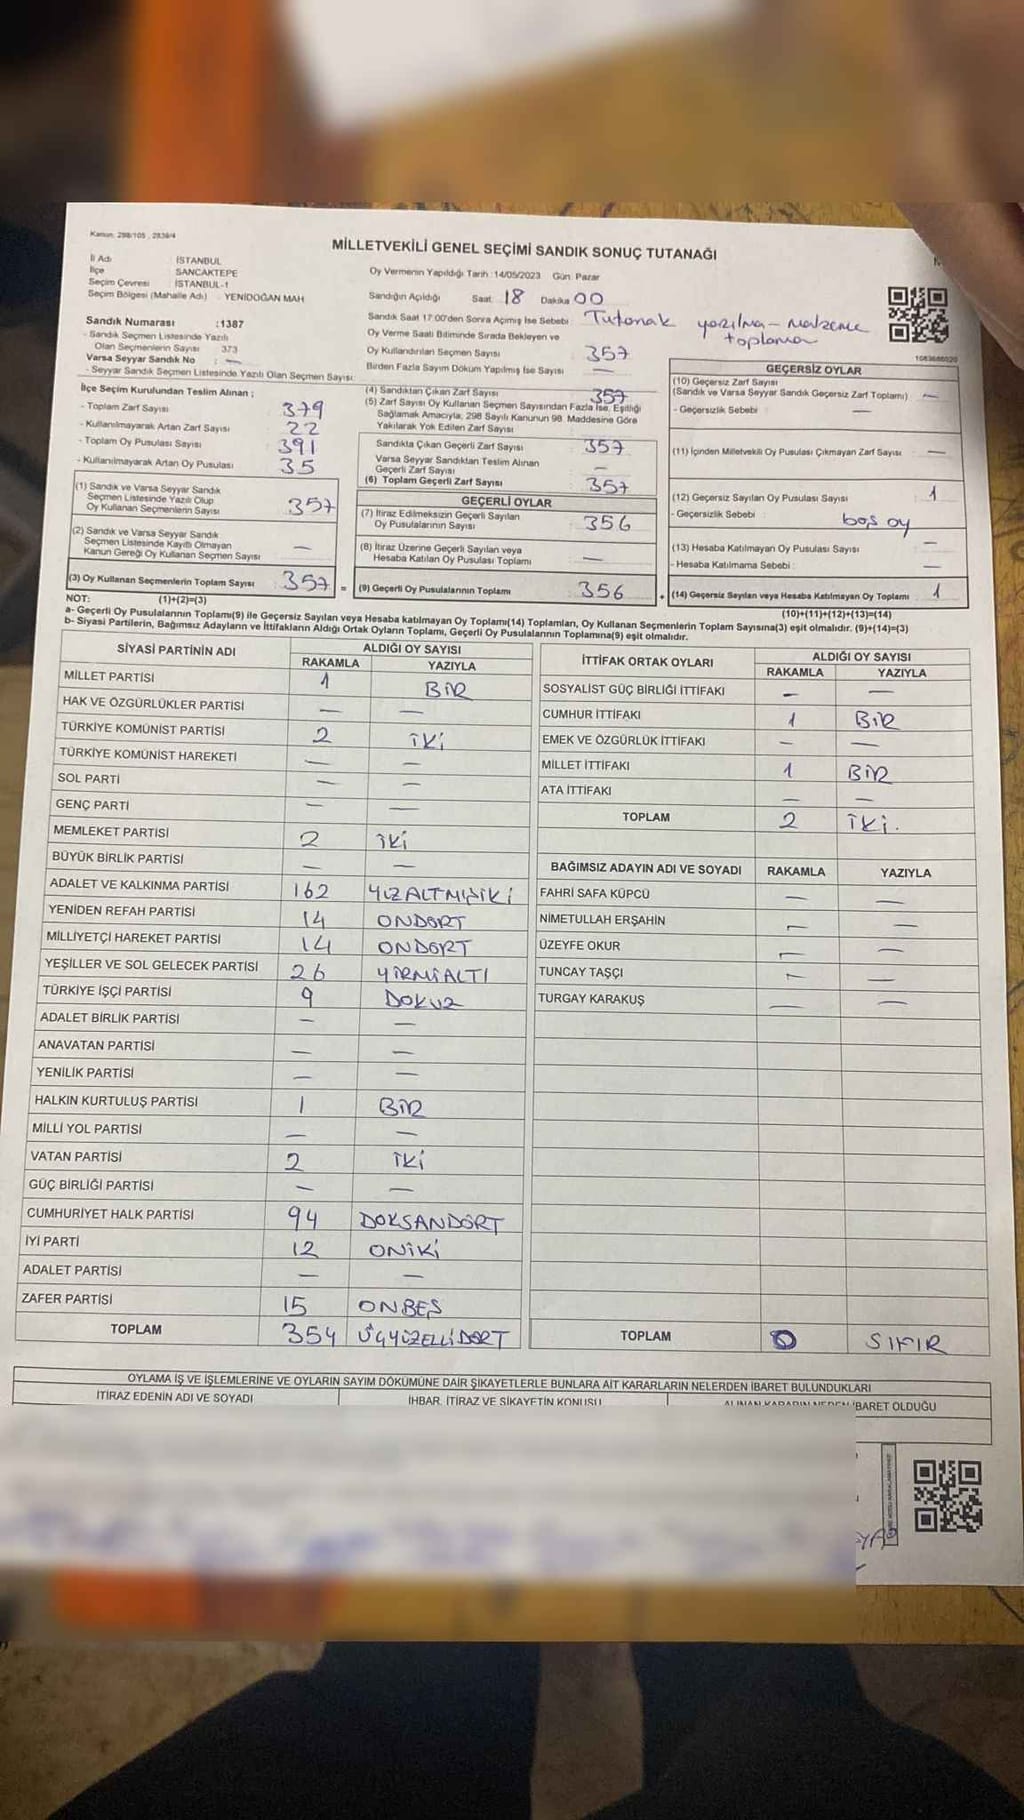 Kanun: 298/105 , 2839/4
MİLLETVEKİLİ GENEL SEÇİMİ SANDIK SONUÇ TUTANAĞI
İl Adı : İSTANBUL
İlçe : SANCAKTEPE
Seçim Çevresi : İSTANBUL-1
Seçim Bölgesi (Mahalle Adı) : YENİDOĞAN MAH
Oy Vermenin Yapıldığı Tarih :14/05/2023 Gün: Pazar
Sandığın Açıldığı Saat 18 Dakika 00
Sandık Saat 17:00'den Sonra Açımış İse Sebebi : Tutanak yazılma - malzeme toplama
Oy Verme Saati Bitiminde Sırada Bekleyen ve
Oy Kullandırılan Seçmen Sayısı 357
Birden Fazla Sayım Döküm Yapılmış İse Sayısı —
1083686020
Sandık Numarası :1387
- Sandık Seçmen Listesinde Yazılı
Olan Seçmenlerin Sayısı : 373
Varsa Seyyar Sandık No : —
- Seyyar Sandık Seçmen Listesinde Yazılı Olan Seçmen Sayısı:
İlçe Seçim Kurulundan Teslim Alınan ;
- Toplam Zarf Sayısı 379
- Kullanılmayarak Artan Zarf Sayısı : 22
- Toplam Oy Pusulası Sayısı 391
- Kullanılmayarak Artan Oy Pusulası 35
(1) Sandık ve Varsa Seyyar Sandık
Seçmen Listesinde Yazılı Olup
Oy Kullanan Seçmenlerin Sayısı 357
(2) Sandık ve Varsa Seyyar Sandık
Seçmen Listesinde Kayıtlı Olmayan
Kanun Gereği Oy Kullanan Seçmen Sayısı —
(3) Oy Kullanan Seçmenlerin Toplam Sayısı 357 =
(4) Sandıktan Çıkan Zarf Sayısı 357
(5) Zarf Sayısı Oy Kullanan Seçmen Sayısından Fazla İse, Eşitliği
Sağlamak Amacıyla, 298 Sayılı Kanunun 98. Maddesine Göre
Yakılarak Yok Edilen Zarf Sayısı
Sandıkta Çıkan Geçerli Zarf Sayısı 357
Varsa Seyyar Sandıktan Teslim Alınan
Geçerli Zarf Sayısı —
(6) Toplam Geçerli Zarf Sayısı 357
GEÇERLİ OYLAR
(7) İtiraz Edilmeksizin Geçerli Sayılan
Oy Pusulalarının Sayısı : 356
(8) İtiraz Üzerine Geçerli Sayılan veya
Hesaba Katılan Oy Pusulası Toplamı —
(9) Geçerli Oy Pusulalarının Toplamı 356 +
GEÇERSİZ OYLAR
(10) Geçersiz Zarf Sayısı
(Sandık ve Varsa Seyyar Sandık Geçersiz Zarf Toplamı) —
- Geçersizlik Sebebi : —
(11) İçinden Milletvekili Oy Pusulası Çıkmayan Zarf Sayısı : —
(12) Geçersiz Sayılan Oy Pusulası Sayısı : 1
- Geçersizlik Sebebi : boş oy
(13) Hesaba Katılmayan Oy Pusulası Sayısı —
- Hesaba Katılmama Sebebi : —
(14) Geçersiz Sayılan veya Hesaba Katılmayan Oy Toplamı 1
NOT: (1)+(2)=(3) (10)+(11)+(12)+(13)=(14)
a- Geçerli Oy Pusulalarının Toplamı(9) ile Geçersiz Sayılan veya Hesaba katılmayan Oy Toplamı(14) Toplamları, Oy Kullanan Seçmenlerin Toplam Sayısına(3) eşit olmalıdır. (9)+(14)=(3)
b- Siyasi Partilerin, Bağımsız Adayların ve İttifakların Aldığı Ortak Oyların Toplamı, Geçerli Oy Pusulalarının Toplamına(9) eşit olmalıdır.
SİYASİ PARTİNİN ADI ALDIĞI OY SAYISI
RAKAMLA YAZIYLA
MİLLET PARTİSİ 1 BİR
HAK VE ÖZGÜRLÜKLER PARTİSİ — —
TÜRKİYE KOMÜNİST PARTİSİ 2 İKİ
TÜRKİYE KOMÜNİST HAREKETİ — —
SOL PARTİ — —
GENÇ PARTİ — —
MEMLEKET PARTİSİ 2 İKİ
BÜYÜK BİRLİK PARTİSİ — —
ADALET VE KALKINMA PARTİSİ 162 YÜZALTMIŞİKİ
YENİDEN REFAH PARTİSİ 14 ONDÖRT
MİLLİYETÇİ HAREKET PARTİSİ 14 ONDÖRT
YEŞİLLER VE SOL GELECEK PARTİSİ 26 YİRMİALTI
TÜRKİYE İŞÇİ PARTİSİ 9 DOKUZ
ADALET BİRLİK PARTİSİ — —
ANAVATAN PARTİSİ — —
YENİLİK PARTİSİ — —
HALKIN KURTULUŞ PARTİSİ 1 BİR
MİLLİ YOL PARTİSİ — —
VATAN PARTİSİ 2 İKİ
GÜÇ BİRLİĞİ PARTİSİ — —
CUMHURİYET HALK PARTİSİ 94 DOKSANDÖRT
İYİ PARTİ 12 ONİKİ
ADALET PARTİSİ — —
ZAFER PARTİSİ 15 ONBEŞ
TOPLAM 354 ÜÇYÜZELLİDÖRT
İTTİFAK ORTAK OYLARI ALDIĞI OY SAYISI
RAKAMLA YAZIYLA
SOSYALİST GÜÇ BİRLİĞİ İTTİFAKI — —
CUMHUR İTTİFAKI 1 BİR
EMEK VE ÖZGÜRLÜK İTTİFAKI — —
MİLLET İTTİFAKI 1 BİR
ATA İTTİFAKI — —
TOPLAM 2 İKİ.
BAĞIMSIZ ADAYIN ADI VE SOYADI RAKAMLA YAZIYLA
FAHRİ SAFA KÜPCÜ — —
NİMETULLAH ERŞAHİN — —
ÜZEYFE OKUR — —
TUNCAY TAŞÇI — —
TURGAY KARAKUŞ — —
TOPLAM 0 SIFIR
OYLAMA İŞ VE İŞLEMLERİNE VE OYLARIN SAYIM DÖKÜMÜNE DAİR ŞİKAYETLERLE BUNLARA AİT KARARLARIN NELERDEN İBARET BULUNDUKLARI
İTİRAZ EDENİN ADI VE SOYADI İHBAR, İTİRAZ VE ŞİKAYETİN KONUSU ALINAN KARARIN NEDEN İBARET OLDUĞU